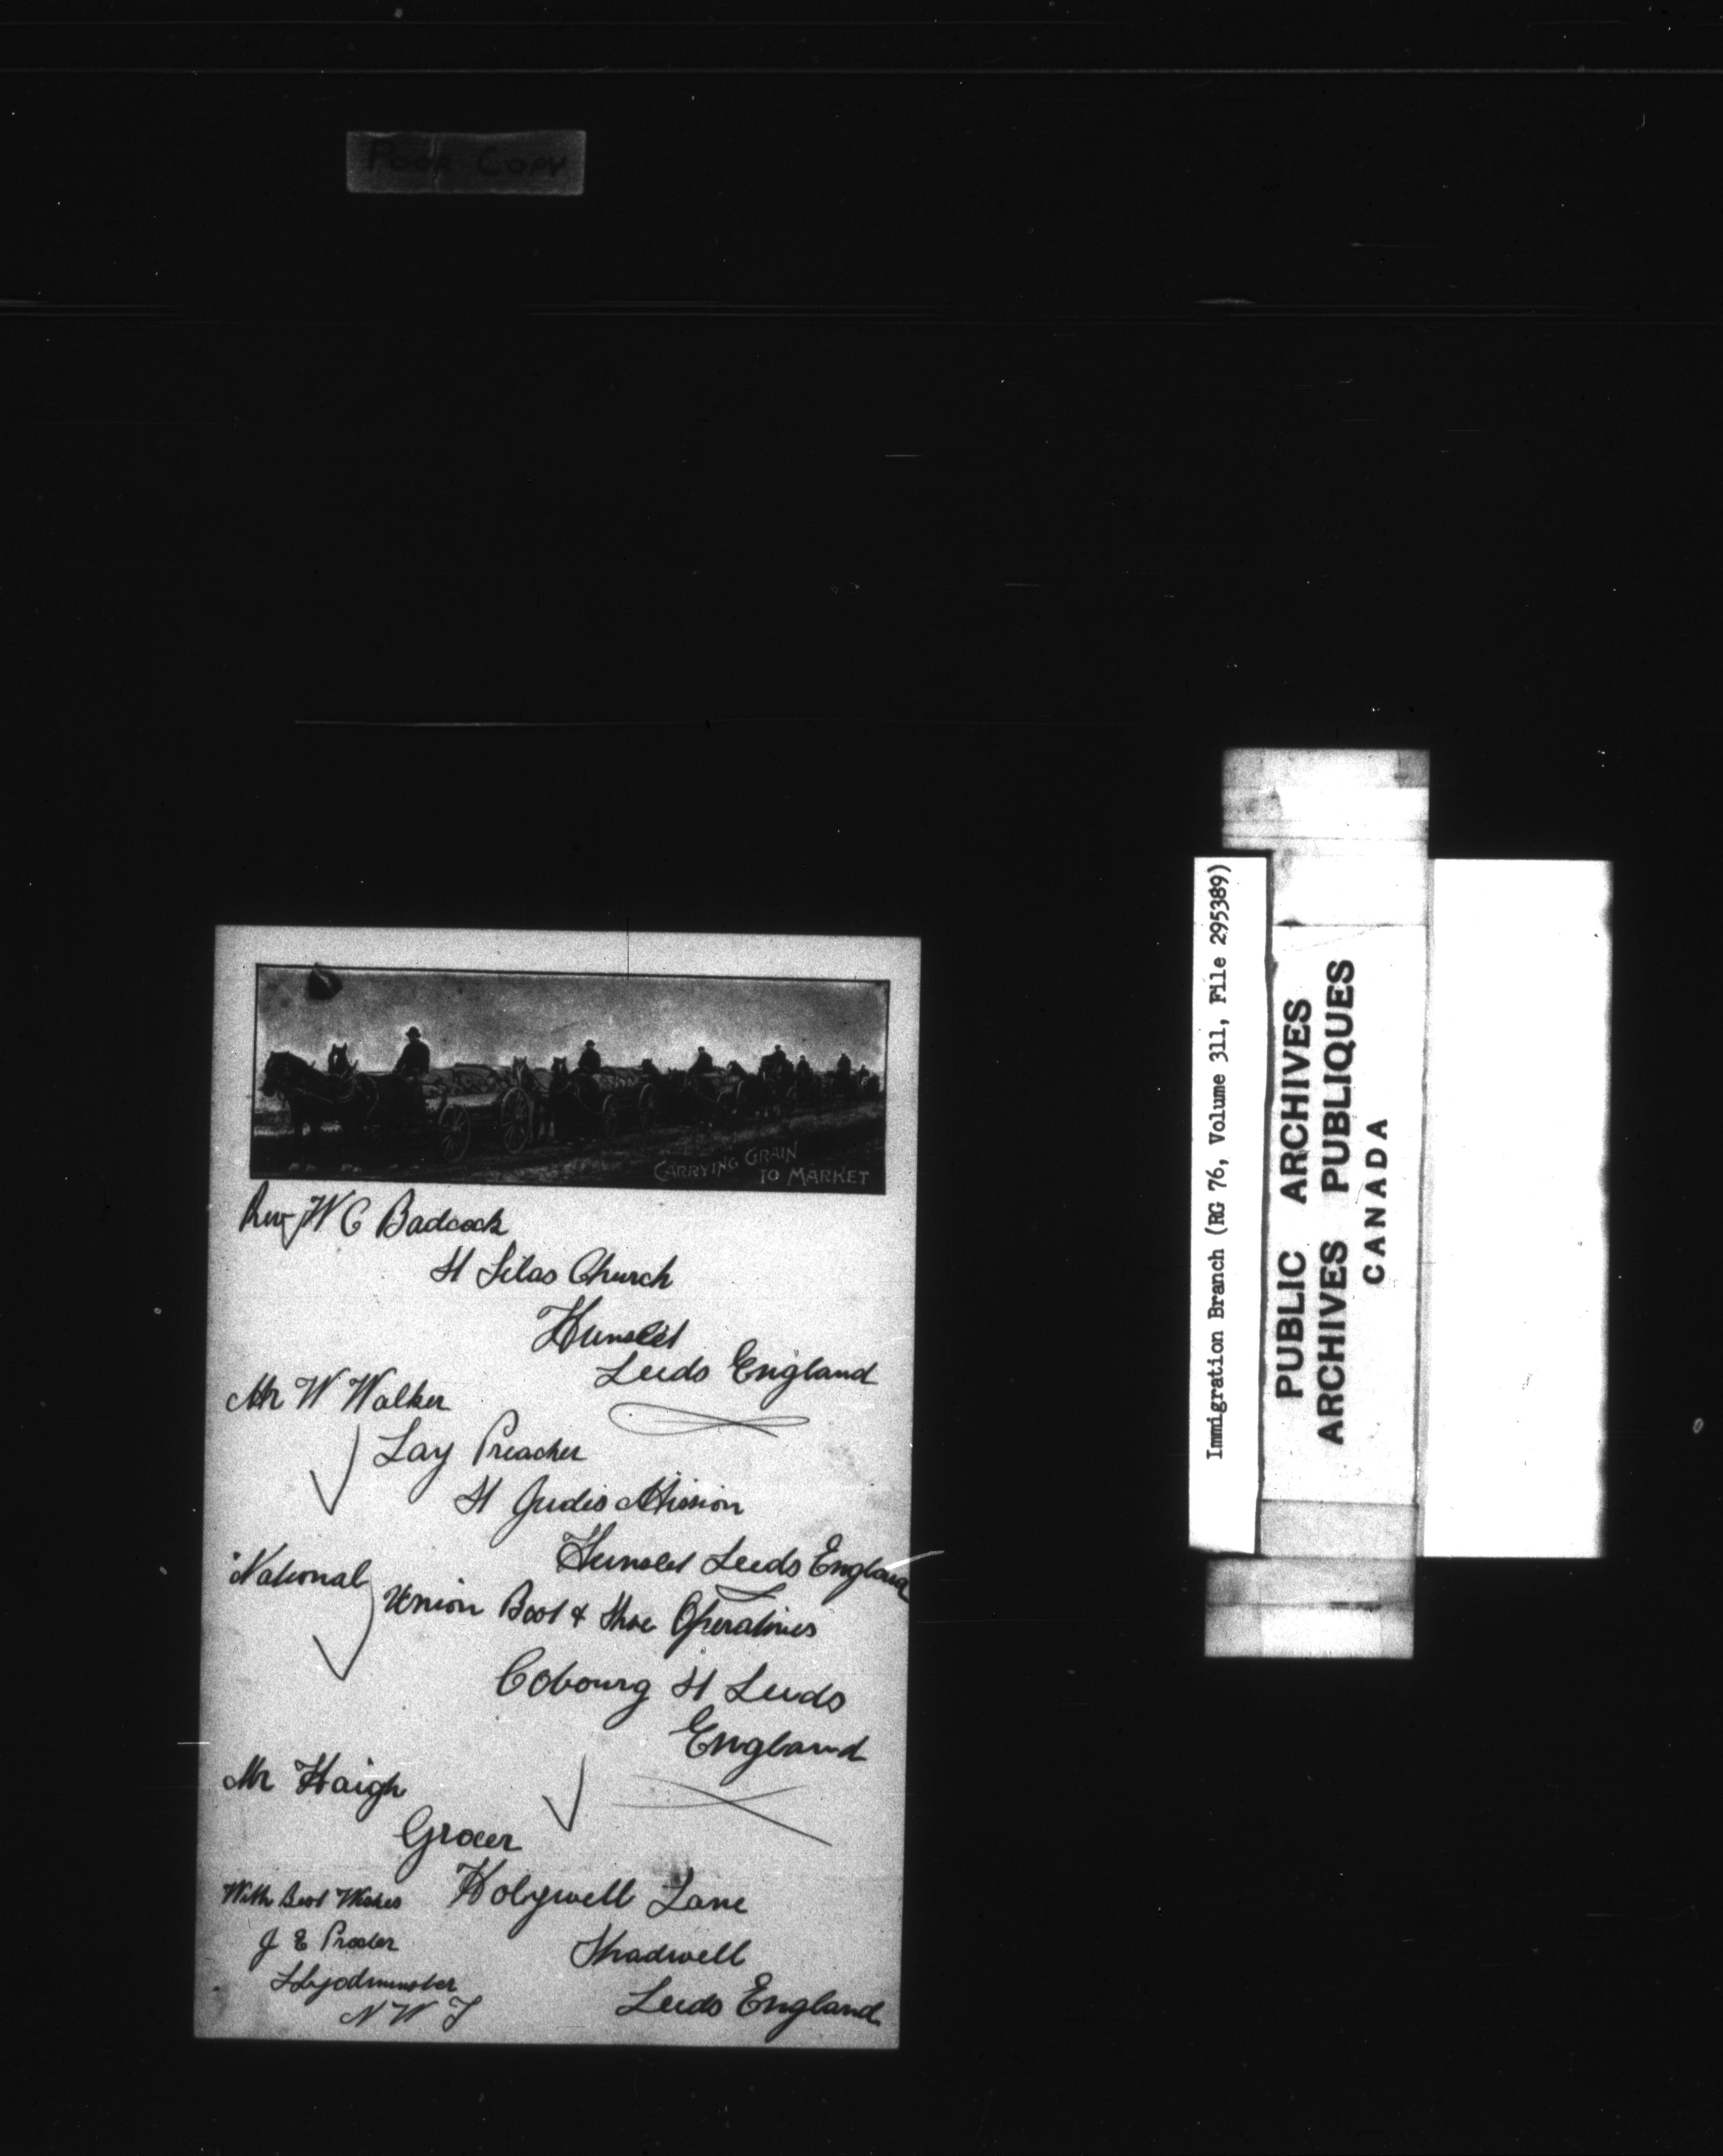 Poor Copy
CARRYING GRAIN
TO MARKET
Rev W C Badcock
St Silas Church
Hunslet
Leeds England
Mr W Walker
Lay Preacher
St Judes Mission
Hunslet Leeds England
National
Union Boot & Shoe Operatives
Cobourg St Leeds
England
Mr Haigh
Grocer
Holywell Lane
Shadwell
Leeds England
With Best Wishes
J E Procter
Lloydminster
N W T
Immigration Branch (RG 76, Volume 311, File 295389)
PUBLIC ARCHIVES
ARCHIVES PUBLIQUES
CANADA